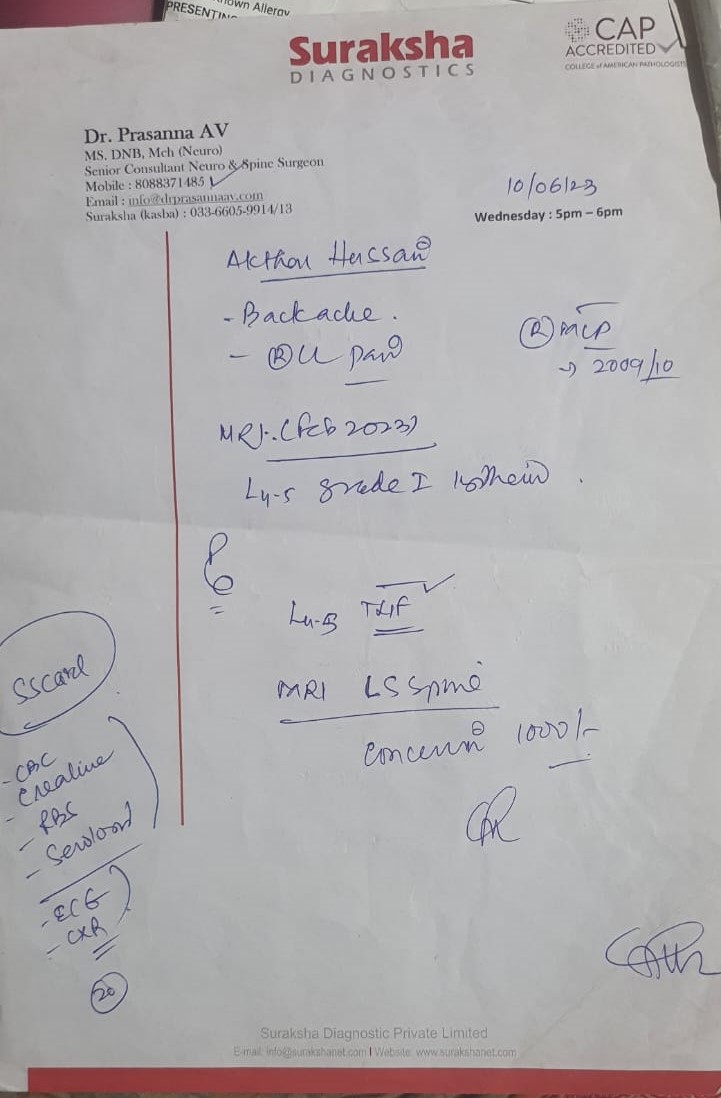 PRESENTIN
nown Allergy
Suraksha
DIAGNOSTICS
CAP
ACCREDITED
COLLEGE of AMERICAN PATHOLOGISTS
Dr. Prasanna AV
MS. DNB, Mch (Neuro)
Senior Consultant Neuro & Spine Surgeon
Mobile : 8088371485
Email : info@drprasannaav.com
Suraksha (kasba) : 033-6605-9914/13
10/06/23
Wednesday : 5pm – 6pm
Hussain
- Backache.
- (R) LL pain
(R)
→ 2009/10
MRI. (Feb 2023)
L4-5 grade I
L4-5 TLIF
MRI LS Spine
1000/-
SSCard
- CBC
- RBS
- ECG
- CXR
20
Suraksha Diagnostic Private Limited
E-mail: info@surakshanet.com I Website: www.surakshanet.com